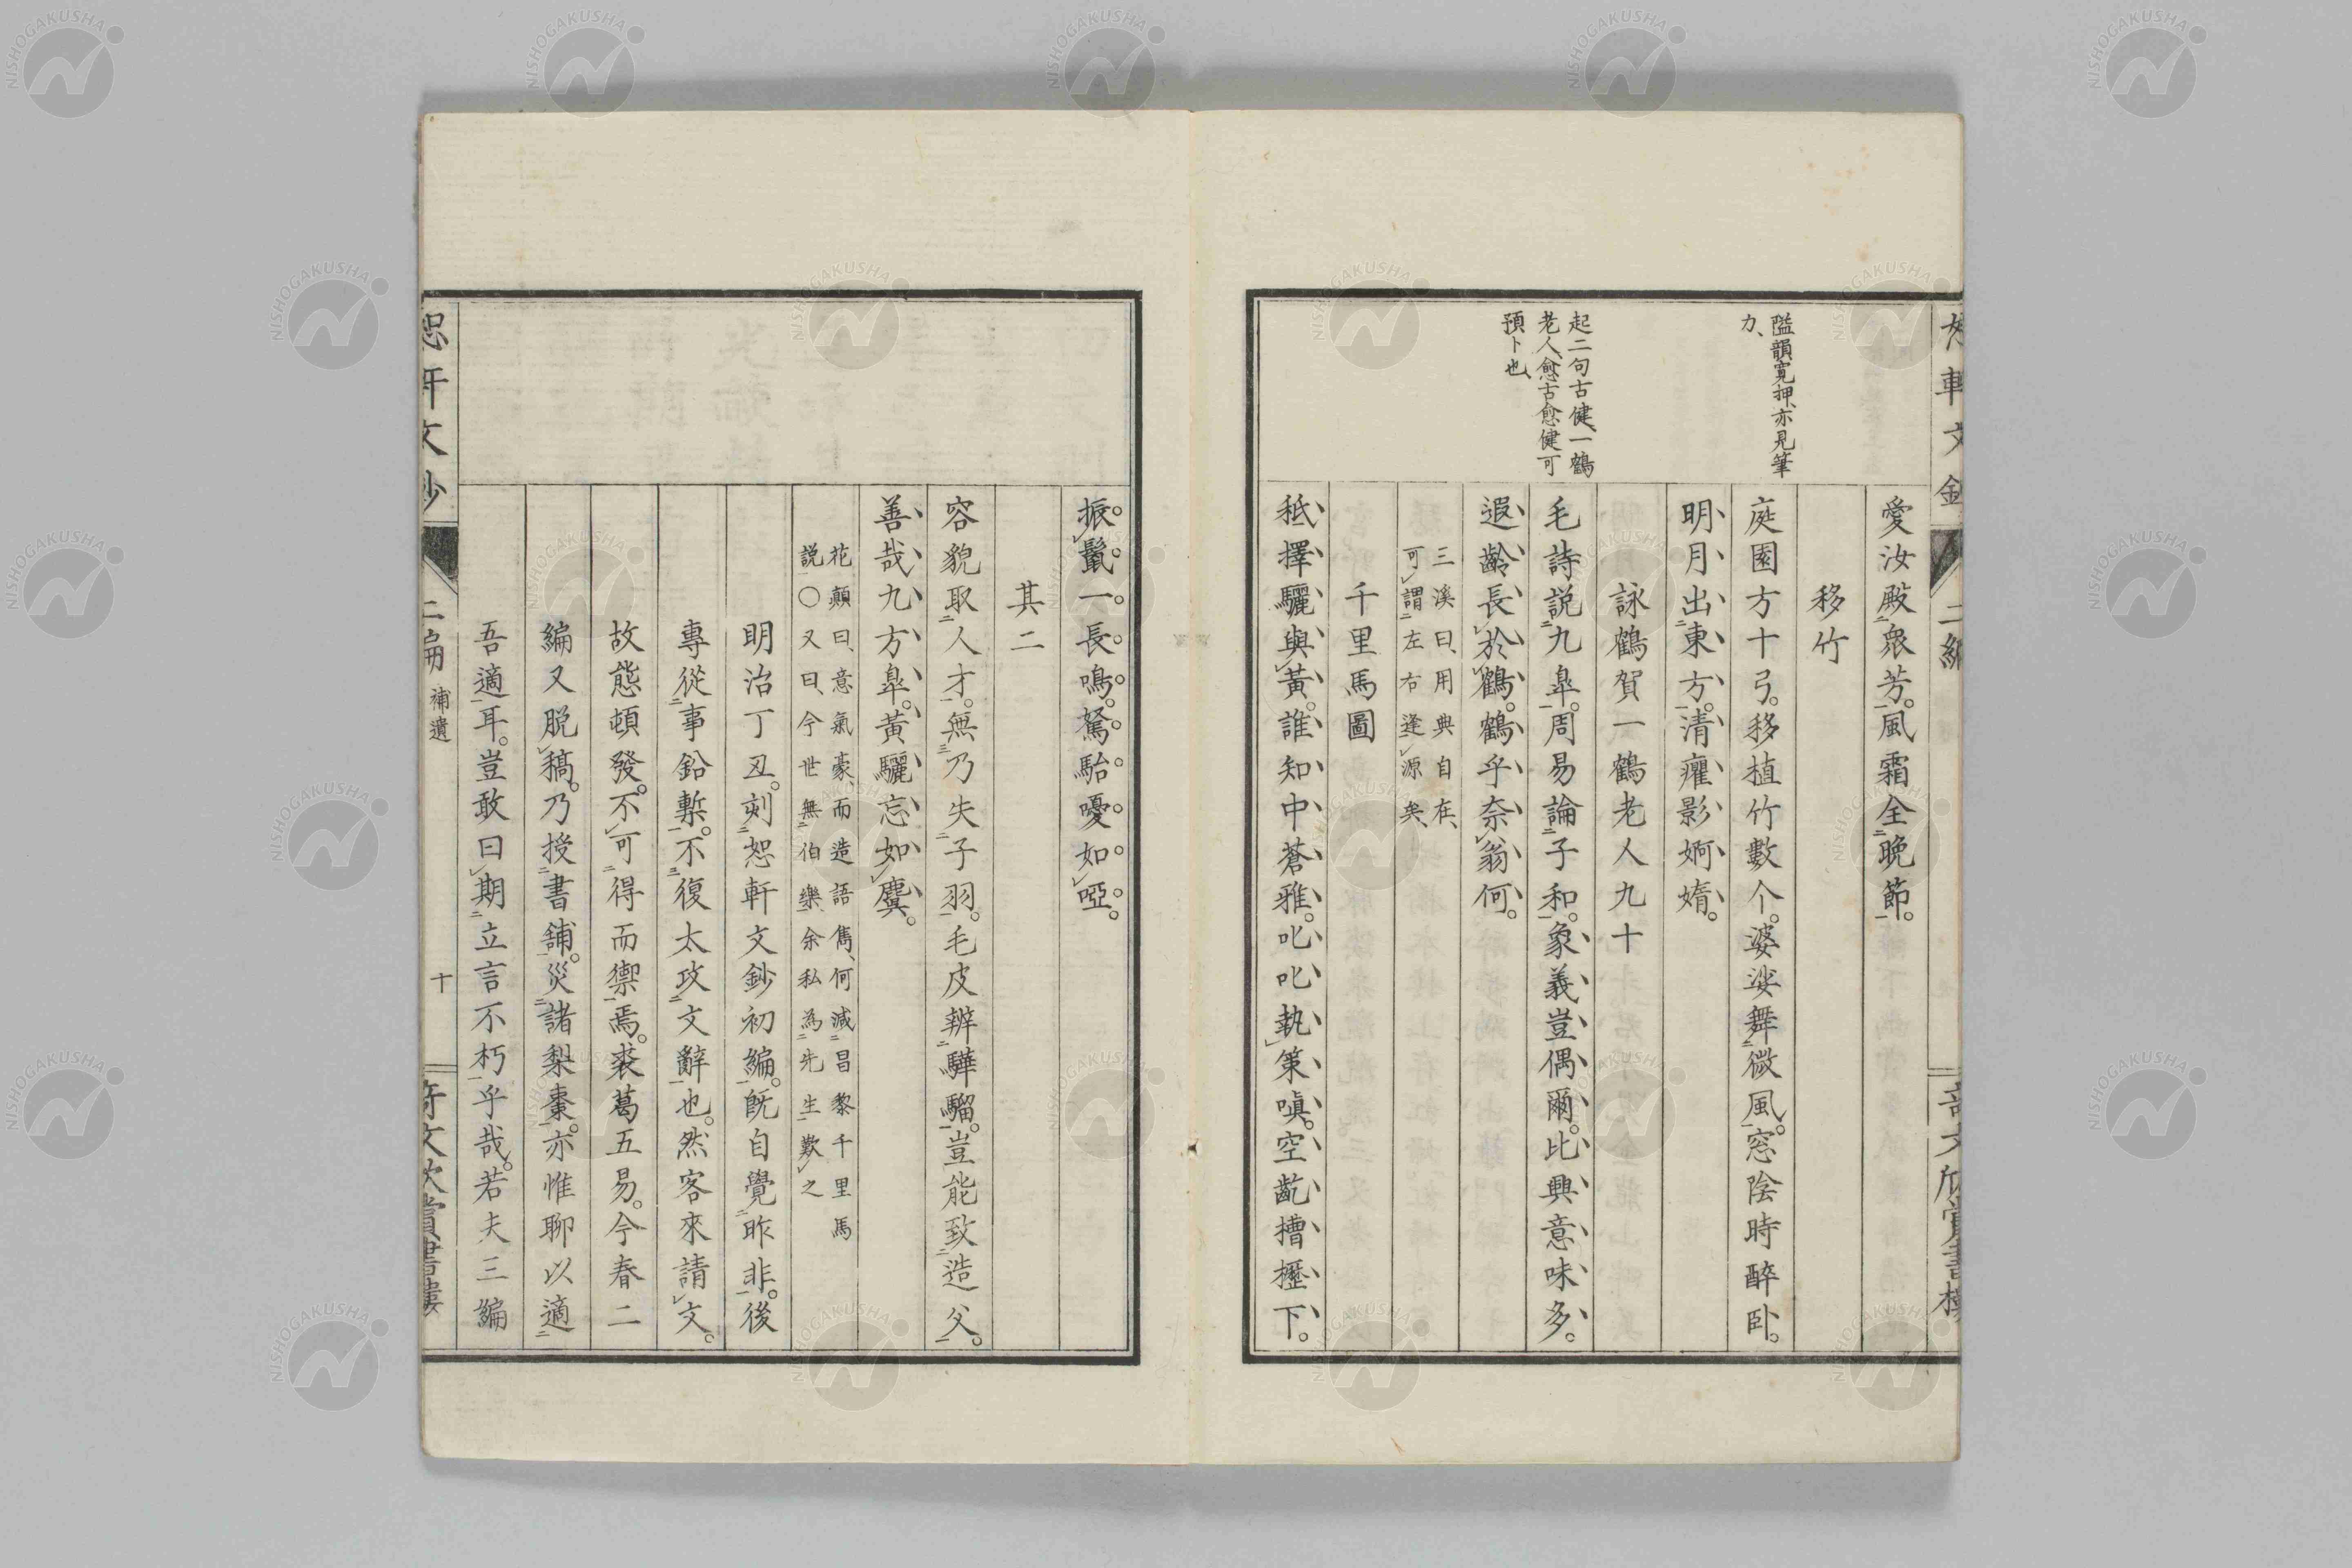 愛汝殿衆芳。風霜全晩節。
移竹
隘韻寛押、亦見筆
力、
庭園方十弓。移植竹數个。婆娑舞微風。窓陰時醉臥。
明月出東方。清癯影婀媠。
詠鶴賀一鶴老人九十
起二句古健、一鶴
老人、愈古愈健可
預卜也、
毛詩説九皐。周易論子和。象義豈偶爾。比興意味多。
遐齡長於鶴。鶴乎奈翁何。
三溪曰、用典自在、
可謂左右逢源矣、
千里馬圖
秪擇驪與黃。誰知中蒼雅。叱叱執策嗔。空齕槽櫪下。
振鬣一長鳴。駑駘嚘如啞。
其二
容貌取人才。無乃失子羽。毛皮辨驊騮。豈能致造父。
善哉九方皐。黃驪忘如麌。
花顛曰、意氣豪、而造語雋、何減昌黎千里馬
説〇又曰、今世無伯樂、余私為先生歎之
明治丁丑。刻恕軒文鈔初編。既自覺昨非。後
專從事鉛槧。不復太攻文辭也。然客來請文。
故態頓發。不可得而禦焉。裘葛五易。今春二
編又脱稿。乃授書舖。災諸梨棗。亦惟聊以適
吾適耳。豈敢曰期立言不朽乎哉。若夫三編
恕軒文鈔 二編 補遺 十 奇文欣賞書樓
NISHOGAKUSHA